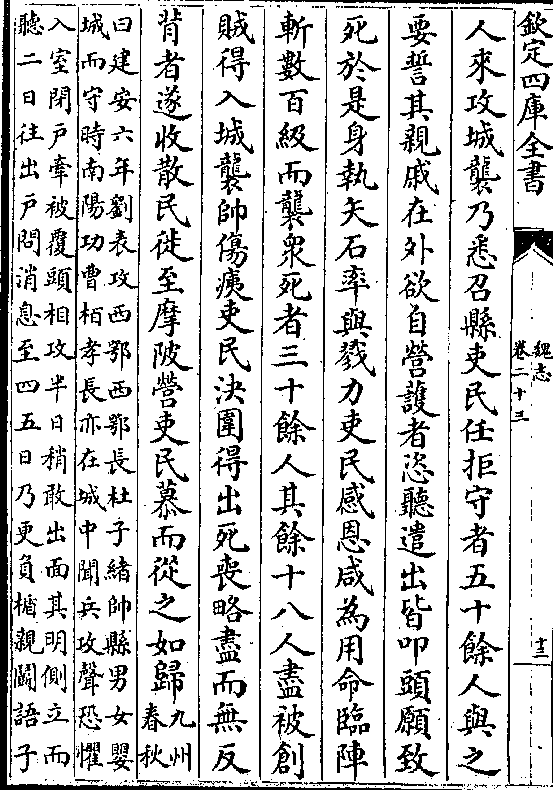 欽定四庫全書
魏志
卷二十三
十二
人來攻城襲乃悉召縣吏民任拒守者五十餘人與之
要誓其親戚在外欲自營護者恣聽遣出皆叩頭願致
死於是身執矢石率與戮力吏民感恩咸為用命臨陣
斬數百級而襲衆死者三十餘人其餘十八人盡被創
賊得入城襲帥傷痍吏民決圍得出死喪略盡而無反
背者遂收散民徙至摩陂營吏民慕而從之如歸九州
春秋
曰建安六年劉表攻西鄂西鄂長杜子緒帥縣男女嬰
城而守時南陽功曹柏孝長亦在城中聞兵攻聲恐懼
入室閉戶牽被覆頭相攻半日稍敢出面其明側立而
聽二日往出戶問消息至四五日乃更負楯親鬭語子